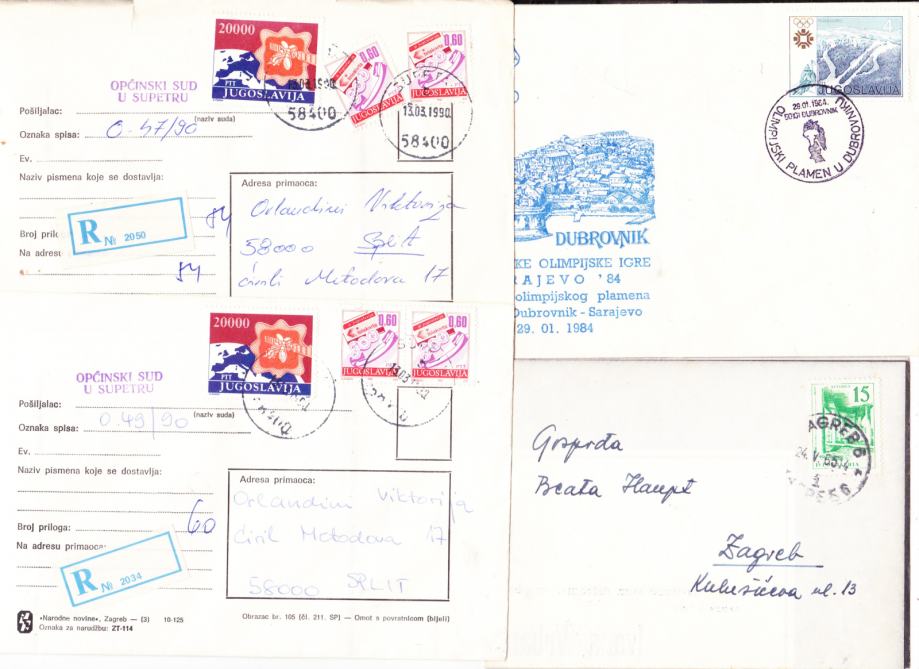 20000
PTT
JUGOSLAVIJA
0.60
JUGOSLAVIJA
0.60
JUGOSLAVIJA
13.03.1990
58400
13.03.1990
58400
OPĆINSKI SUD
U SUPETRU
Pošiljalac:
(naziv suda)
Oznaka spisa: 0-47/90
Ev.
Naziv pismena koje se dostavlja:
R № 2050
Broj pril
Na adresu
84
84
Adresa primaoca:
Orlandini Viktorija
58000 Split
Ćirili Metodova 17
20000
PTT
JUGOSLAVIJA
0.60
JUGOSLAVIJA
0.60
JUGOSLAVIJA
OPĆINSKI SUD
U SUPETRU
Pošiljalac:
(naziv suda)
Oznaka spisa: 0 49/90
Ev.
Naziv pismena koje se dostavlja:
Broj priloga: 60
Na adresu primaoca:
R № 2034
Adresa primaoca:
Orlandini Viktorija
Ćiril Metodova 17
58000 SPLIT
»Narodne novine«, Zagreb — (3) 10-125
Oznaka za narudžbu: ZT-114
Obrazac br. 105 (čl. 211. SP) — Omot s povratnicom (bijeli)
4
JUGOSLAVIJA
29.01.1984.
50101 DUBROVNIK
OLIMPIJSKI PLAMEN U DUBROVNIKU
DUBROVNIK
KE OLIMPIJSKE IGRE
RAJEVO '84
olimpijskog plamena
Dubrovnik - Sarajevo
29. 01. 1984
15
JUGOSLAVIJA
ZAGREB 6
24.V.65.14
Gospođa
Beata Haupt
Zagreb
Kukuljevićeva ul. 13